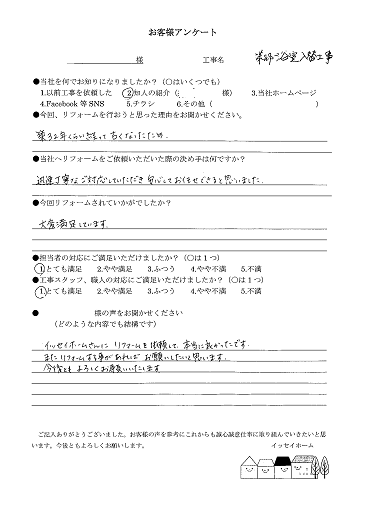 お客様アンケート
様 工事名 浴室入替工事
●当社を何でお知りになりましたか？（○はいくつでも）
1.以前工事を依頼した ②知人の紹介（ 様） 3.当社ホームページ
4.Facebook 等 SNS 5.チラシ 6.その他（ ）
●今回、リフォームを行おうと思った理由をお聞かせください。
築32年くらい経って古くなったため。
●当社へリフォームをご依頼いただいた際の決め手は何ですか？
迅速丁寧なご対応していただき安心しておまかせできると思いました。
●今回リフォームされていかがでしたか？
大変満足しています。
●担当者の対応にご満足いただけましたか？（○は１つ）
①とても満足 2.やや満足 3.ふつう 4.やや不満 5.不満
●工事スタッフ、職人の対応にご満足いただけましたか？（○は１つ）
①とても満足 2.やや満足 3.ふつう 4.やや不満 5.不満
● 様の声をお聞かせください
（どのような内容でも結構です）
イッセイホームさんに リフォームを依頼して、本当に良かったです。
またリフォームする事があれば お願いしたいと思います。
今後とも よろしくお願いいたします
ご記入ありがとうございました。お客様の声を参考にこれからも誠心誠意仕事に取り組んでいきたいと思
います。今後ともよろしくお願いします。 イッセイホーム